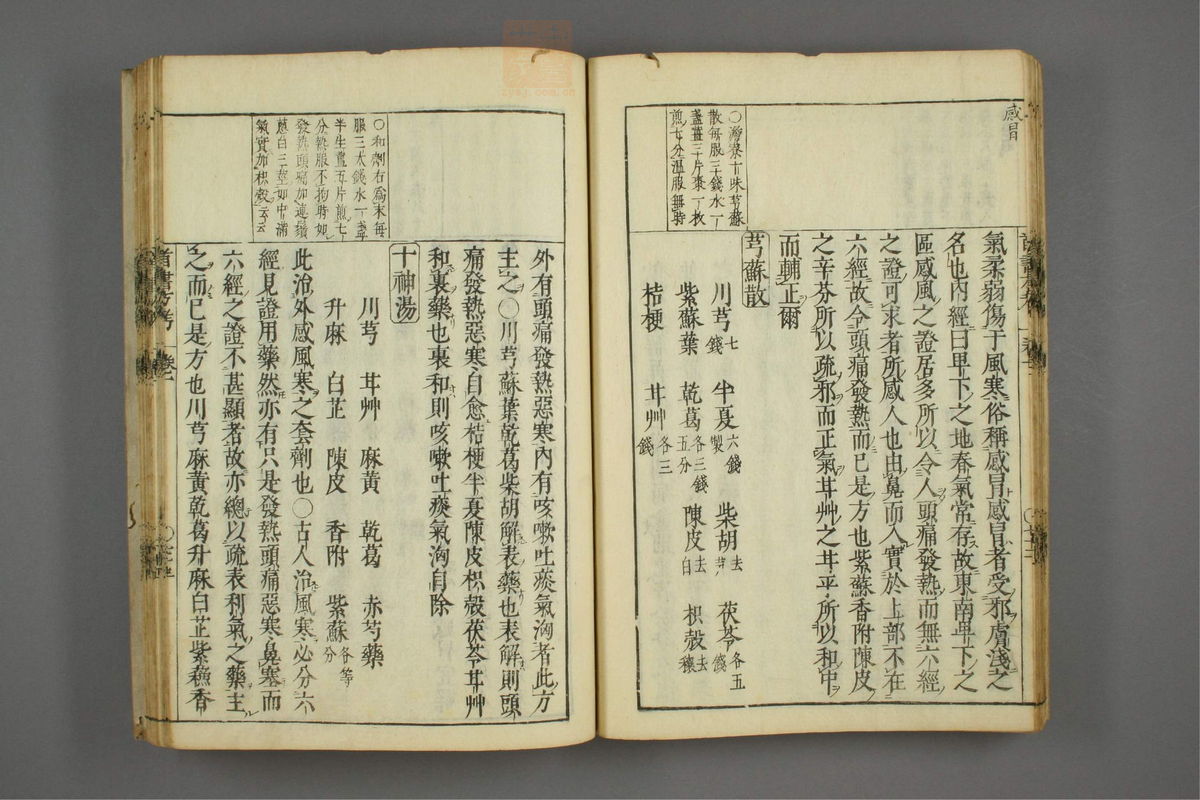 感冒
〇濟衆十味芎蘇
散每服三錢水一
盞薑三片棗一枚
煎七分溫服無時
氣柔弱傷于風寒俗稱感冒感冒者受邪膚淺之
名也內經曰卑下之地春氣常存故東南卑下之
區感風之證居多所以令人頭痛發熱而無六經
之證可求者所感人也由鼻而入實於上部不在
六經故令頭痛發熱而已是方也紫蘇香附陳皮
之辛芬所以疏邪而正氣甘艸之甘平所以和中
而輔正爾
芎蘇散
川芎七錢 半夏六錢製 柴胡去芦 茯苓各五錢
紫蘇葉 乾葛各三錢五分 陳皮去白 枳殼去穰
桔梗 甘艸各三錢
外有頭痛發熱惡寒內有咳嗽吐痰氣洶者此方
主之〇川芎蘇葉乾葛柴胡解表藥也表解則頭
痛發熱惡寒自愈桔梗半夏陳皮枳殼茯苓甘艸
和裏藥也裏和則咳嗽吐痰氣洶自除
〇和劑右爲末每
服三大錢水一盞
半生薑五片煎七
分熱服不拘時如
發熱頭痛加連鬚
蔥白三莖如中滿
氣實加枳殼云云
十神湯
川芎 甘艸 麻黃 乾葛 赤芍藥
升麻 白芷 陳皮 香附 紫蘇各等分
此治外感風寒之套劑也〇古人治風寒必分六
經見證用藥然亦有只是發熱頭痛惡寒鼻塞而
六經之證不甚顯者故亦總以疏表利氣之藥主
之而已是方也川芎麻黃乾葛升麻白芷紫蘇香
首書方考 卷一